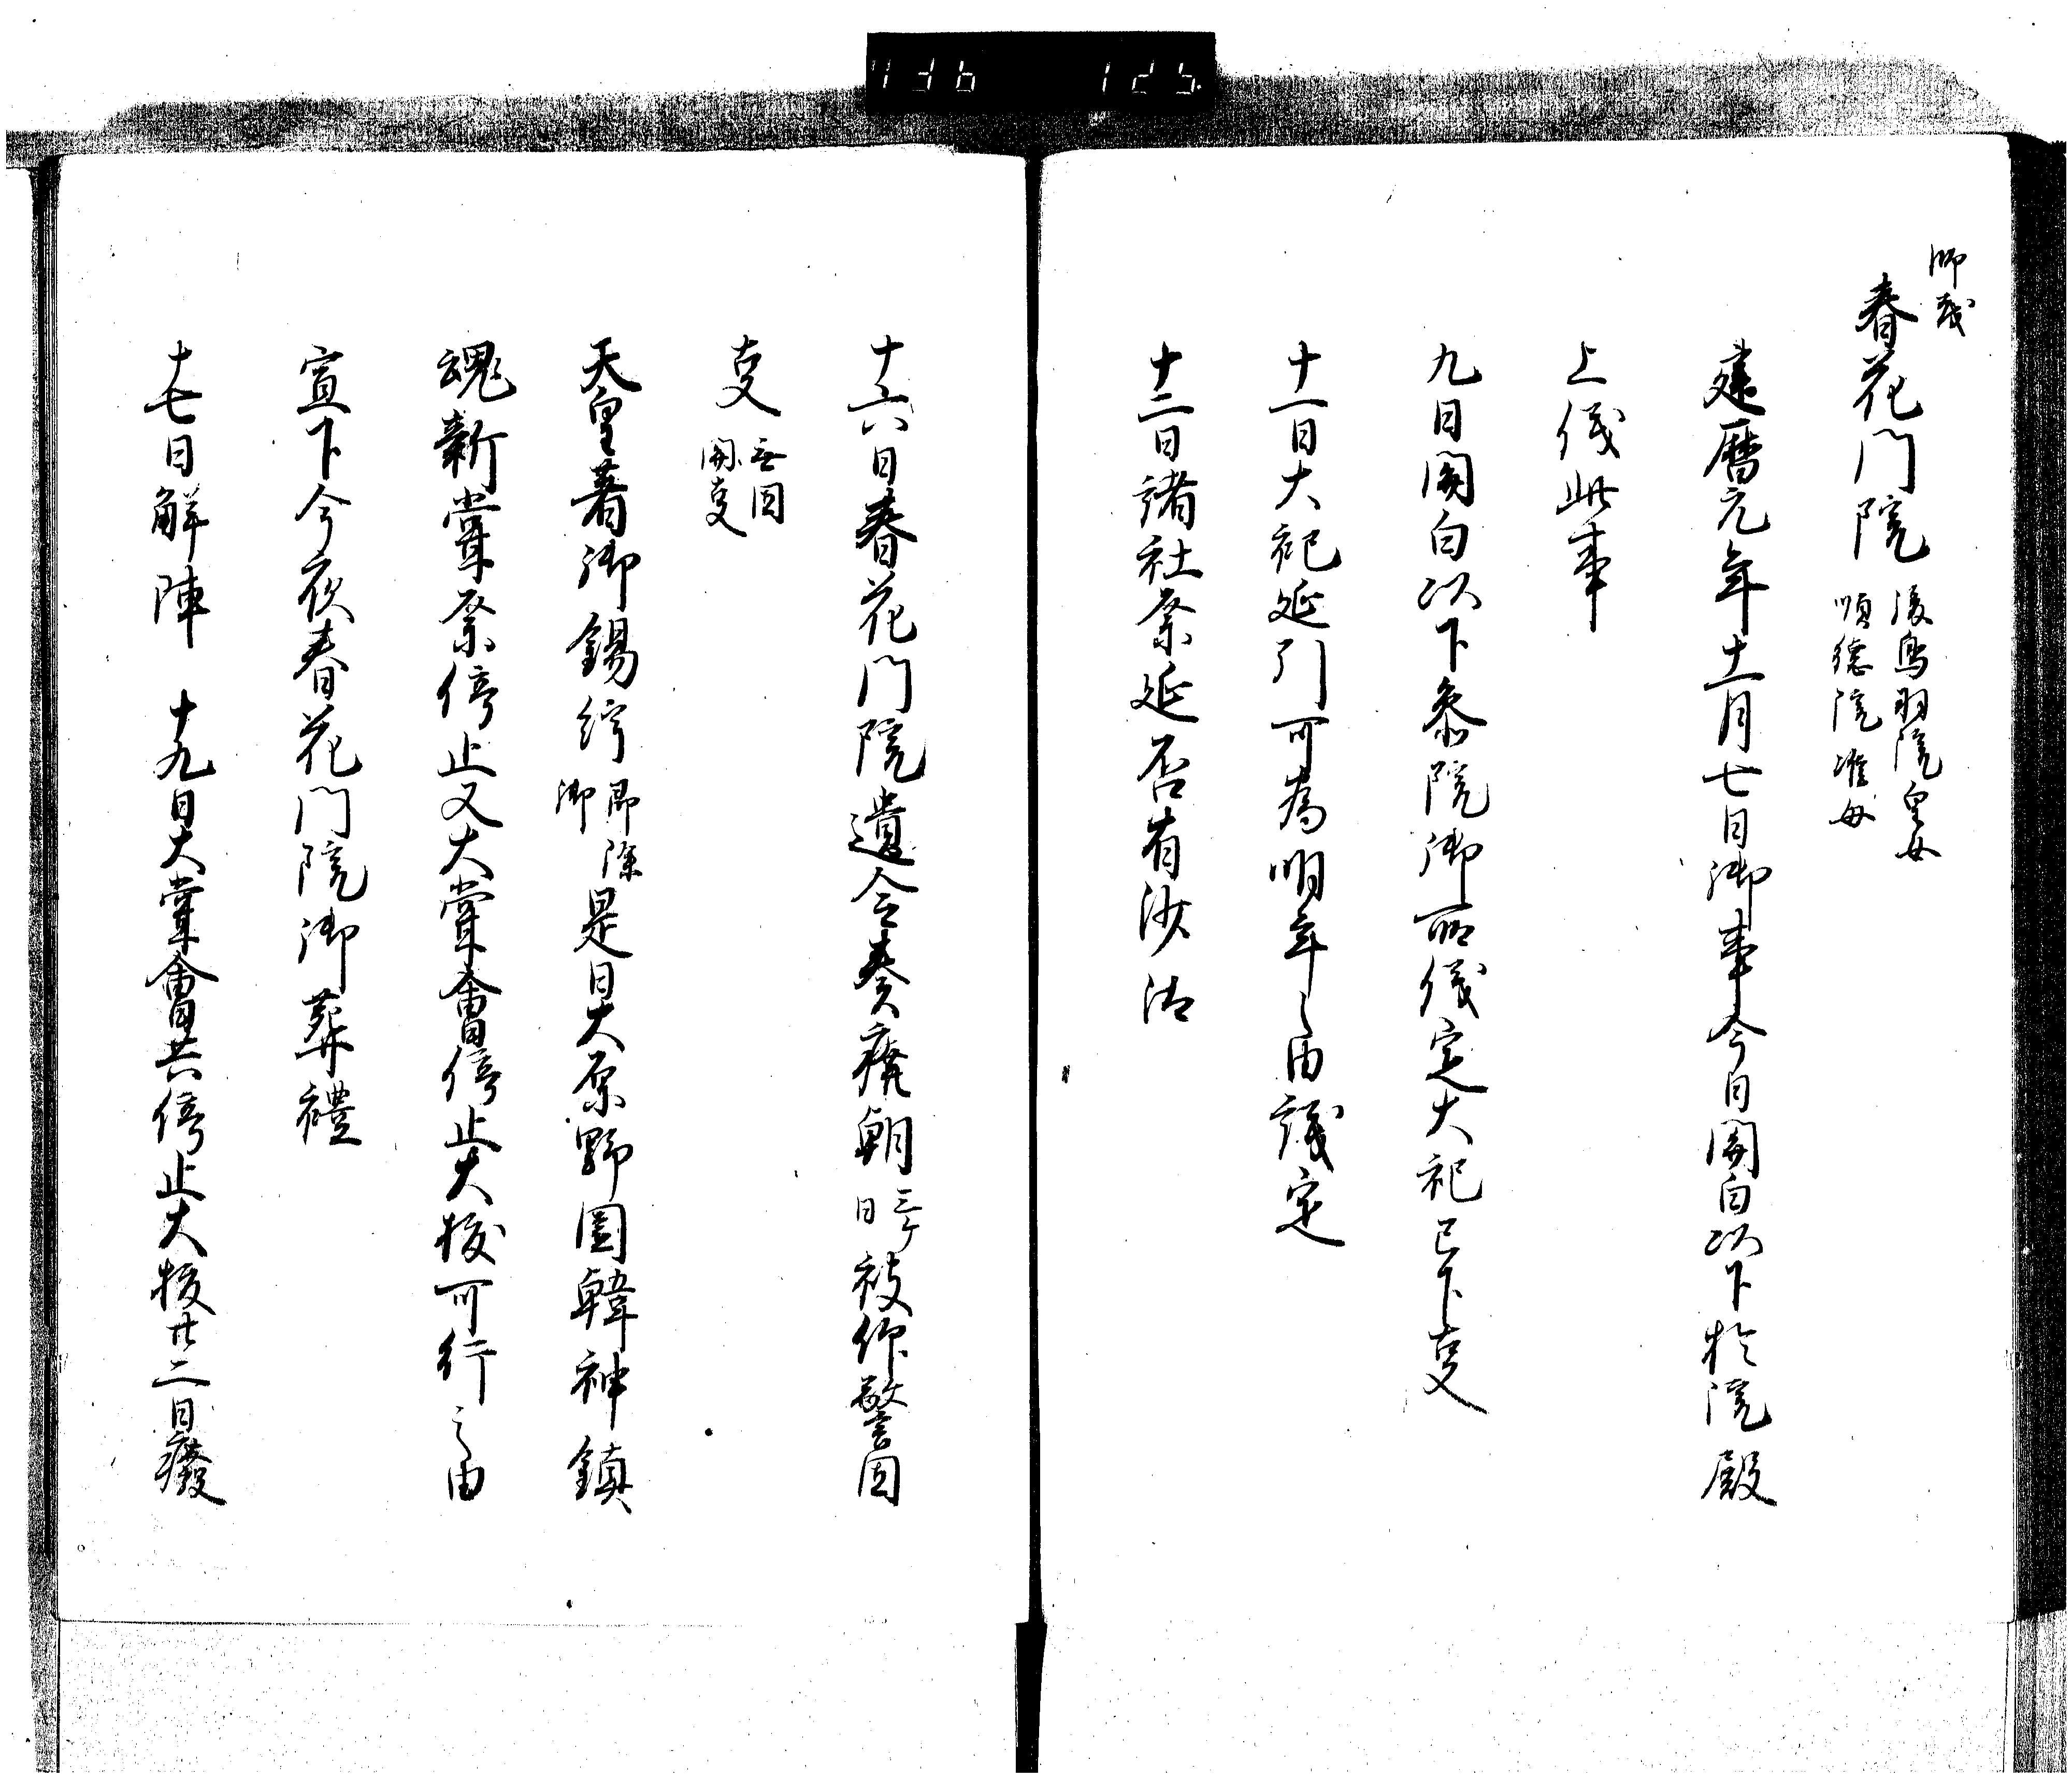 師茂
春花門院 後鳥羽院皇女
順徳院准母
建暦元年十一月七日御事今日関白以下於院殿
上儀此事
九日関白以下参院御所儀定大祀已下叓
十一日大祀延引可為明年之由議定
十二日諸社祭延否有沙汰
十六日春花門院遺令奏廃朝三ケ日被仰警固
叓 無固
関叓
天皇着御錫紵 即除
御 是日大原野園韓神鎮
魂新嘗祭停止又大嘗會停止大祓可行之由
宣下今夜春花門院御葬禮
十七日解陣 十九日大嘗會共停止大祓廿二日癈